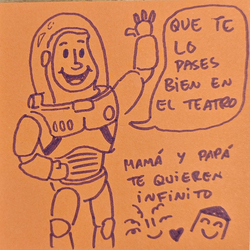 QUE TE
LO
PASES
BIEN EN
EL TEATRO
MAMÁ Y PAPÁ
TE QUIEREN
INFINITO